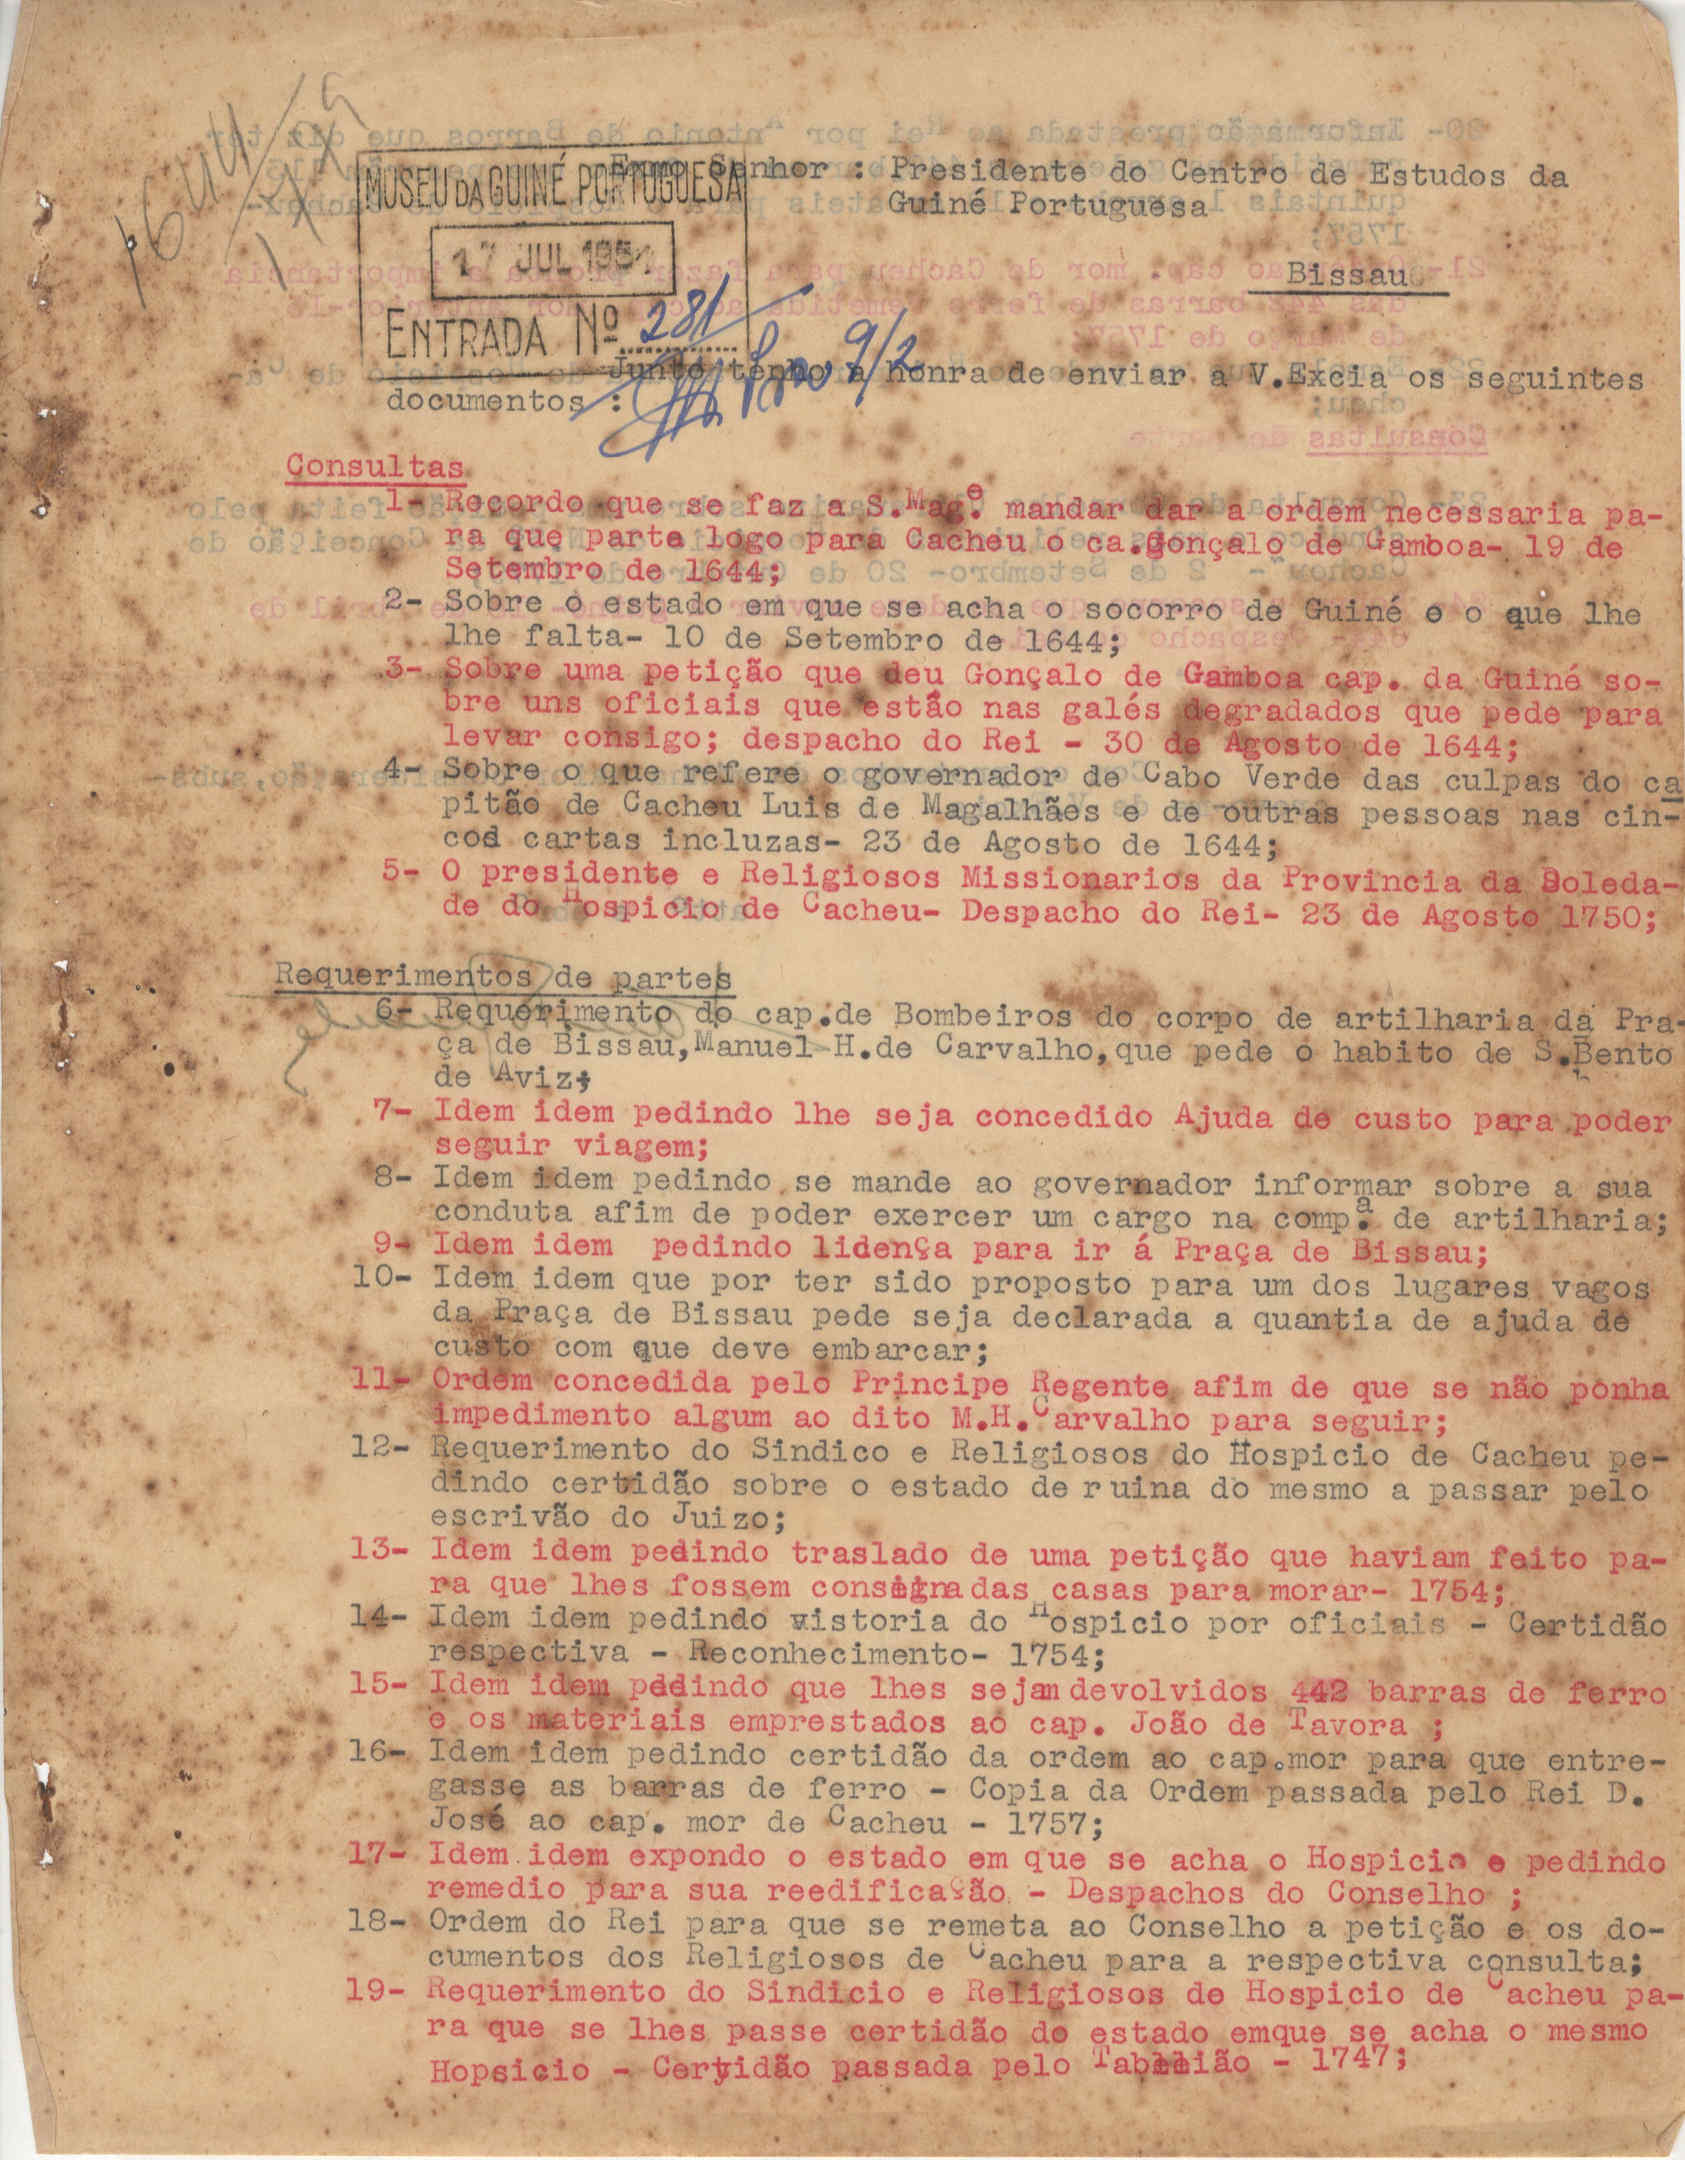 Exmo Senhor : Presidente do Centro de Estudos da
Guiné Portuguesa
MUSEU DA GUINÉ PORTUGUESA
17 JUL 1951
Bissau
ENTRADA Nº 281
9/2
Junto tenho a honra de enviar a V.Excia os seguintes
documentos :
Consultas
1- Recordo que se faz a S.Mag.e mandar dar a ordem necessaria pa-
ra que parta logo para Cacheu o ca.Gonçalo de Gamboa- 19 de
Setembro de 1644;
2- Sobre o estado em que se acha o socorro de Guiné e o que lhe
lhe falta- 10 de Setembro de 1644;
3- Sobre uma petição que deu Gonçalo de Gamboa cap. da Guiné so-
bre uns oficiais que estão nas galés degradados que pede para
levar consigo; despacho do Rei - 30 de Agosto de 1644;
4- Sobre o que refere o governador de Cabo Verde das culpas do ca
pitão de Cacheu Luis de Magalhães e de outras pessoas nas cin-
cod cartas incluzas- 23 de Agosto de 1644;
5- O presidente e Religiosos Missionarios da Provincia da Soleda-
de do Hospicio de Cacheu- Despacho do Rei- 23 de Agosto 1750;
Requerimentos de partes
6- Requerimento do cap.de Bombeiros do corpo de artilharia da Pra-
ça de Bissau,Manuel H.de Carvalho,que pede o habito de S.Bento
de Aviz;
7- Idem idem pedindo lhe seja concedido Ajuda de custo para poder
seguir viagem;
8- Idem idem pedindo se mande ao governador informar sobre a sua
conduta afim de poder exercer um cargo na comp.a de artilharia;
9- Idem idem pedindo lidença para ir á Praça de Bissau;
10- Idem idem que por ter sido proposto para um dos lugares vagos
da Praça de Bissau pede seja declarada a quantia de ajuda de
custo com que deve embarcar;
11- Ordem concedida pelo Principe Regente afim de que se não ponha
impedimento algum ao dito M.H.Carvalho para seguir;
12- Requerimento do Sindico e Religiosos do Hospicio de Cacheu pe-
dindo certidão sobre o estado de ruina do mesmo a passar pelo
escrivão do Juizo;
13- Idem idem pedindo traslado de uma petição que haviam feito pa-
ra que lhes fossem consignadas casas para morar- 1754;
14- Idem idem pedindo vistoria do Hospicio por oficiais - Certidão
respectiva - Reconhecimento- 1754;
15- Idem idem pedindo que lhes sejam devolvidos 442 barras de ferro
e os materiais emprestados ao cap. João de Tavora ;
16- Idem idem pedindo certidão da ordem ao cap.mor para que entre-
gasse as barras de ferro - Copia da Ordem passada pelo Rei D.
José ao cap. mor de Cacheu - 1757;
17- Idem idem expondo o estado em que se acha o Hospicio e pedindo
remedio para sua reedificação - Despachos do Conselho ;
18- Ordem do Rei para que se remeta ao Conselho a petição e os do-
cumentos dos Religiosos de Cacheu para a respectiva consulta;
19- Requerimento do Sindicio e Religiosos do Hospicio de Cacheu pa-
ra que se lhes passe certidão do estado emque se acha o mesmo
Hopsicio - Certidão passada pelo Tabelião - 1747;